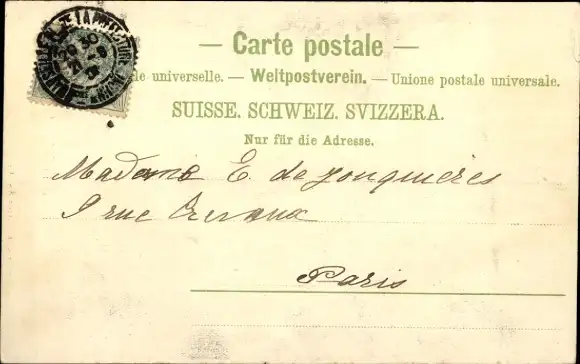 LA PREFECTURE
— Carte postale —
le universelle. — Weltpostverein. — Unione postale universale.
SUISSE. SCHWEIZ. SVIZZERA.
Nur für die Adresse.
Madame E. de Jonquières
9 rue
Paris